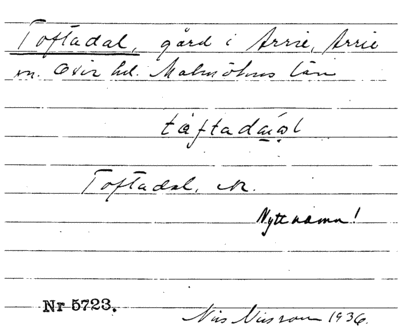 Toftadal, gård i Arrie, Arrie
sn. Oxie hd. Malmöhus län
Toftadal, N.
Nytt namn!
Nr 5723.
Nils Nilsson 1936.